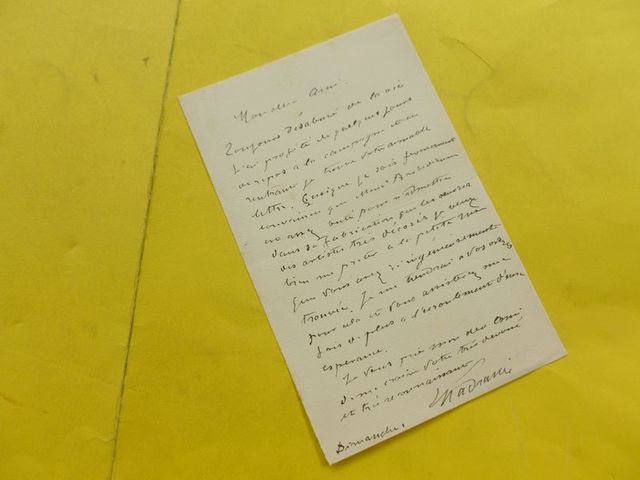 Mon cher Ami.
Toujours désabusé de la vie
j'ai profité de quelques jours
de repos à la campagne et en
rentrant je trouve votre aimable
lettre. Quoique je sois fermement
convaincu que Mons
assez pour n'admettre
dans sa fabrication que les œuvres
des artistes très décorés je veux
bien me prêter à la petite ruse
que vous avez si ingénieusement
trouvée. Je me tiendrai à vos ordres
pour cela et vous assisterez une
fois de plus à l'écroulement d'une
espérance.
Je vous prie mon cher Ami
de me croire votre très dévoué
et très reconnaissant
Dimanche.